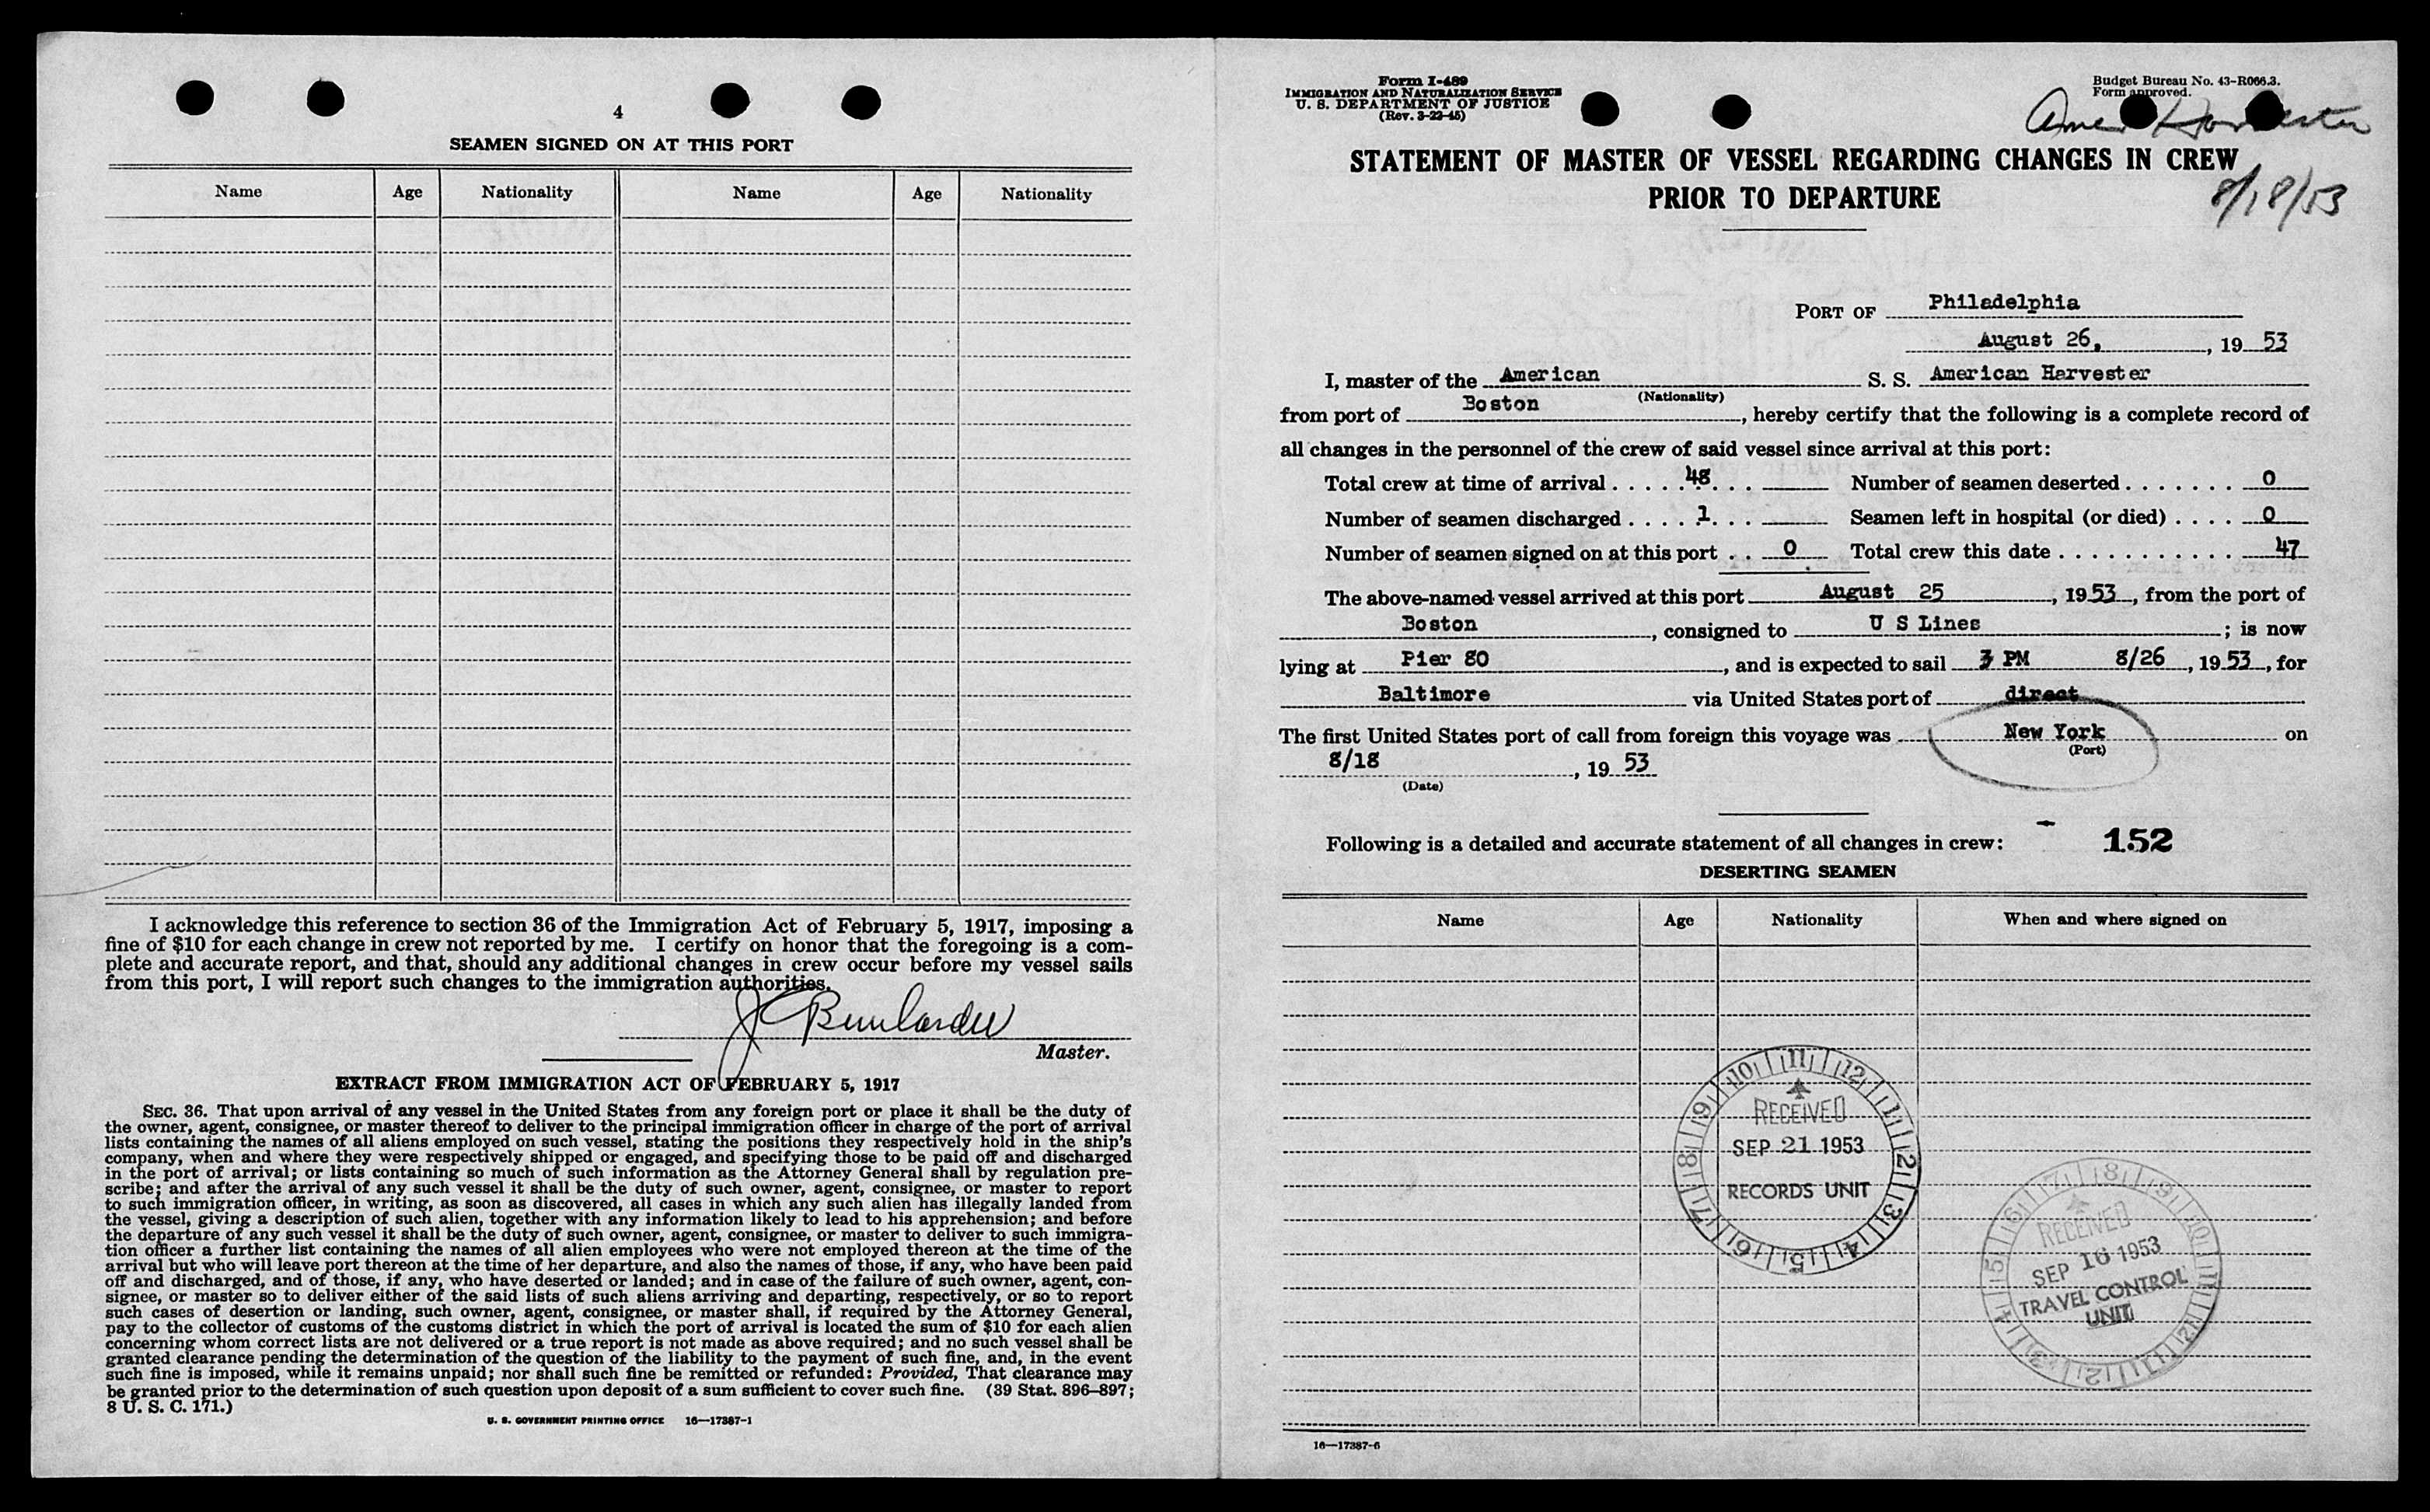 4
SEAMEN SIGNED ON AT THIS PORT
Name Age Nationality Name Age Nationality
I acknowledge this reference to section 36 of the Immigration Act of February 5, 1917, imposing a
fine of $10 for each change in crew not reported by me. I certify on honor that the foregoing is a com-
plete and accurate report, and that, should any additional changes in crew occur before my vessel sails
from this port, I will report such changes to the immigration authorities.
Master.
EXTRACT FROM IMMIGRATION ACT OF FEBRUARY 5, 1917
SEC. 36. That upon arrival of any vessel in the United States from any foreign port or place it shall be the duty of
the owner, agent, consignee, or master thereof to deliver to the principal immigration officer in charge of the port of arrival
lists containing the names of all aliens employed on such vessel, stating the positions they respectively hold in the ship's
company, when and where they were respectively shipped or engaged, and specifying those to be paid off and discharged
in the port of arrival; or lists containing so much of such information as the Attorney General shall by regulation pre-
scribe; and after the arrival of any such vessel it shall be the duty of such owner, agent, consignee, or master to report
to such immigration officer, in writing, as soon as discovered, all cases in which any such alien has illegally landed from
the vessel, giving a description of such alien, together with any information likely to lead to his apprehension; and before
the departure of any such vessel it shall be the duty of such owner, agent, consignee, or master to deliver to such immigra-
tion officer a further list containing the names of all alien employees who were not employed thereon at the time of the
arrival but who will leave port thereon at the time of her departure, and also the names of those, if any, who have been paid
off and discharged, and of those, if any, who have deserted or landed; and in case of the failure of such owner, agent, con-
signee, or master so to deliver either of the said lists of such aliens arriving and departing, respectively, or so to report
such cases of desertion or landing, such owner, agent, consignee, or master shall, if required by the Attorney General,
pay to the collector of customs of the customs district in which the port of arrival is located the sum of $10 for each alien
concerning whom correct lists are not delivered or a true report is not made as above required; and no such vessel shall be
granted clearance pending the determination of the question of the liability to the payment of such fine, and, in the event
such fine is imposed, while it remains unpaid; nor shall such fine be remitted or refunded: Provided, That clearance may
be granted prior to the determination of such question upon deposit of a sum sufficient to cover such fine. (39 Stat. 896–897;
8 U. S. C. 171.)
U. S. GOVERNMENT PRINTING OFFICE 16—17387-1
Form I-489
IMMIGRATION AND NATURALIZATION SERVICE
U. S. DEPARTMENT OF JUSTICE
(Rev. 3-22-45)
Budget Bureau No. 43-R066.3.
Form approved.
Amer Harvester
STATEMENT OF MASTER OF VESSEL REGARDING CHANGES IN CREW
PRIOR TO DEPARTURE
8/18/53
PORT OF Philadelphia
August 26, , 19 53
I, master of the American S. S. American Harvester
(Nationality)
from port of Boston , hereby certify that the following is a complete record of
all changes in the personnel of the crew of said vessel since arrival at this port:
Total crew at time of arrival . . . . . 48 . . . Number of seamen deserted . . . . . . . 0
Number of seamen discharged . . . . 1 . . . Seamen left in hospital (or died) . . . . 0
Number of seamen signed on at this port . . 0 Total crew this date . . . . . . . . . . . 47
The above-named vessel arrived at this port August 25 , 19 53 , from the port of
Boston , consigned to U S Lines ; is now
lying at Pier 80 , and is expected to sail 3 PM 8/26 , 19 53 , for
Baltimore via United States port of direct
The first United States port of call from foreign this voyage was New York on
(Port)
8/18 , 19 53
(Date)
Following is a detailed and accurate statement of all changes in crew: - 152
DESERTING SEAMEN
Name Age Nationality When and where signed on
10 11 12 1 2 3 4 5 6 7 8 9
RECEIVED
SEP 21 1953
RECORDS UNIT
6 7 8 9 10 11 12 1 2 3 4 5
RECEIVED
SEP 16 1953
TRAVEL CONTROL
UNIT
16—17387-6